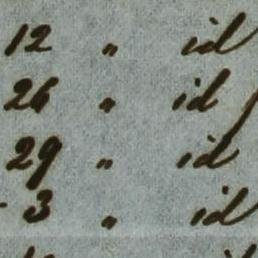 12 " id
26 " id
29 " id
- 3 " id